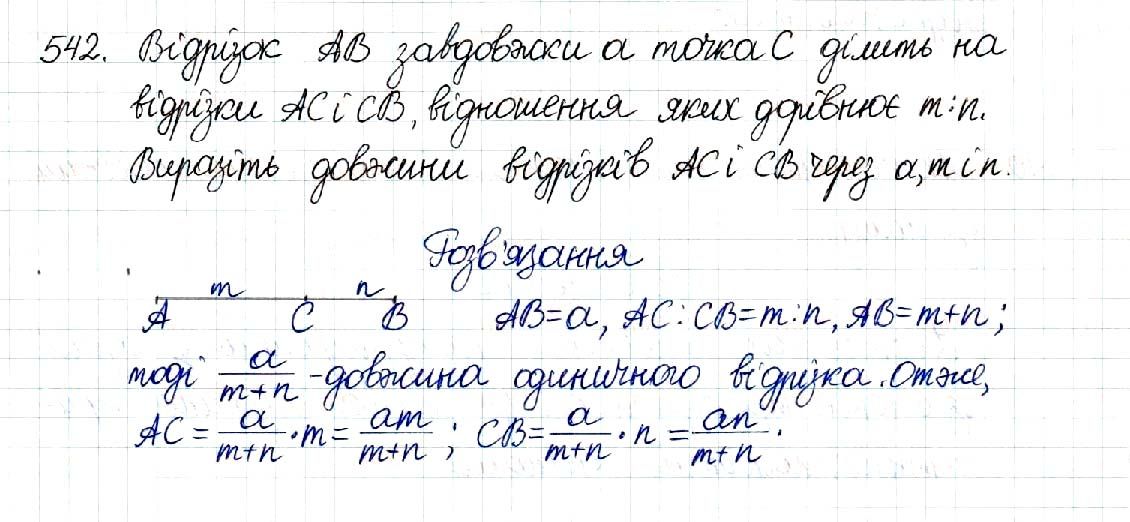 542. Відрізок AB завдовжки a точка C ділить на
відрізки AC і CB, відношення яких дорівнює m:n.
Виразіть довжини відрізків AC і CB через a, m і n.
Розв'язання
m n
A C B AB=a, AC:CB=m:n, AB=m+n;
тоді a/(m+n) -довжина одиничного відрізка. Отже,
AC = a/(m+n) · m = am/(m+n) ; CB = a/(m+n) · n = an/(m+n) .